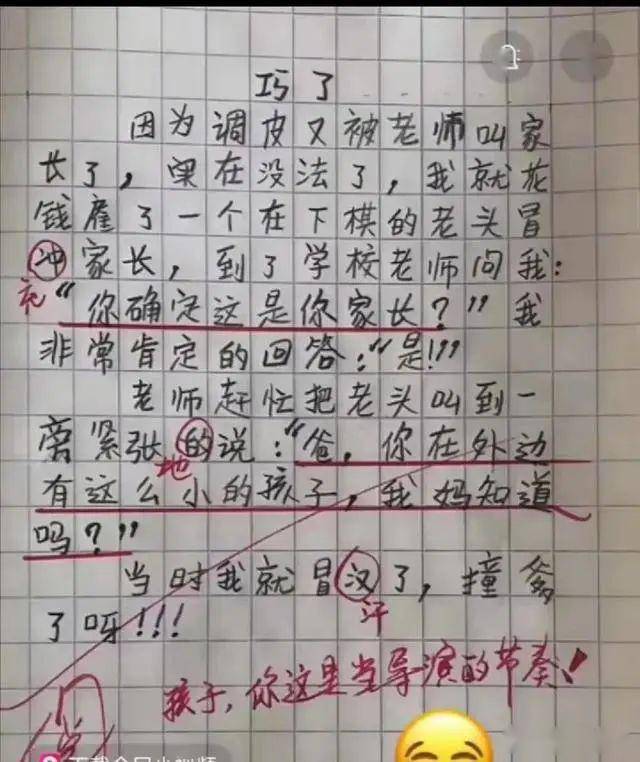 巧了
因为调皮又被老师叫家
长了，果在没法了，我就花
钱雇了一个在下棋的老头冒
冲家长，到了学校老师问我：
充
“你确定这是你家长？”我
非常肯定的回答：“是!!!”
老师赶忙把老头叫到一
旁紧张的说：“爸，你在外边
地
有这么小的孩子，我妈知道
吗？”
当时我就冒汉了，撞爹
汗
了呀!!!
孩子，你这是当导演的节奏！